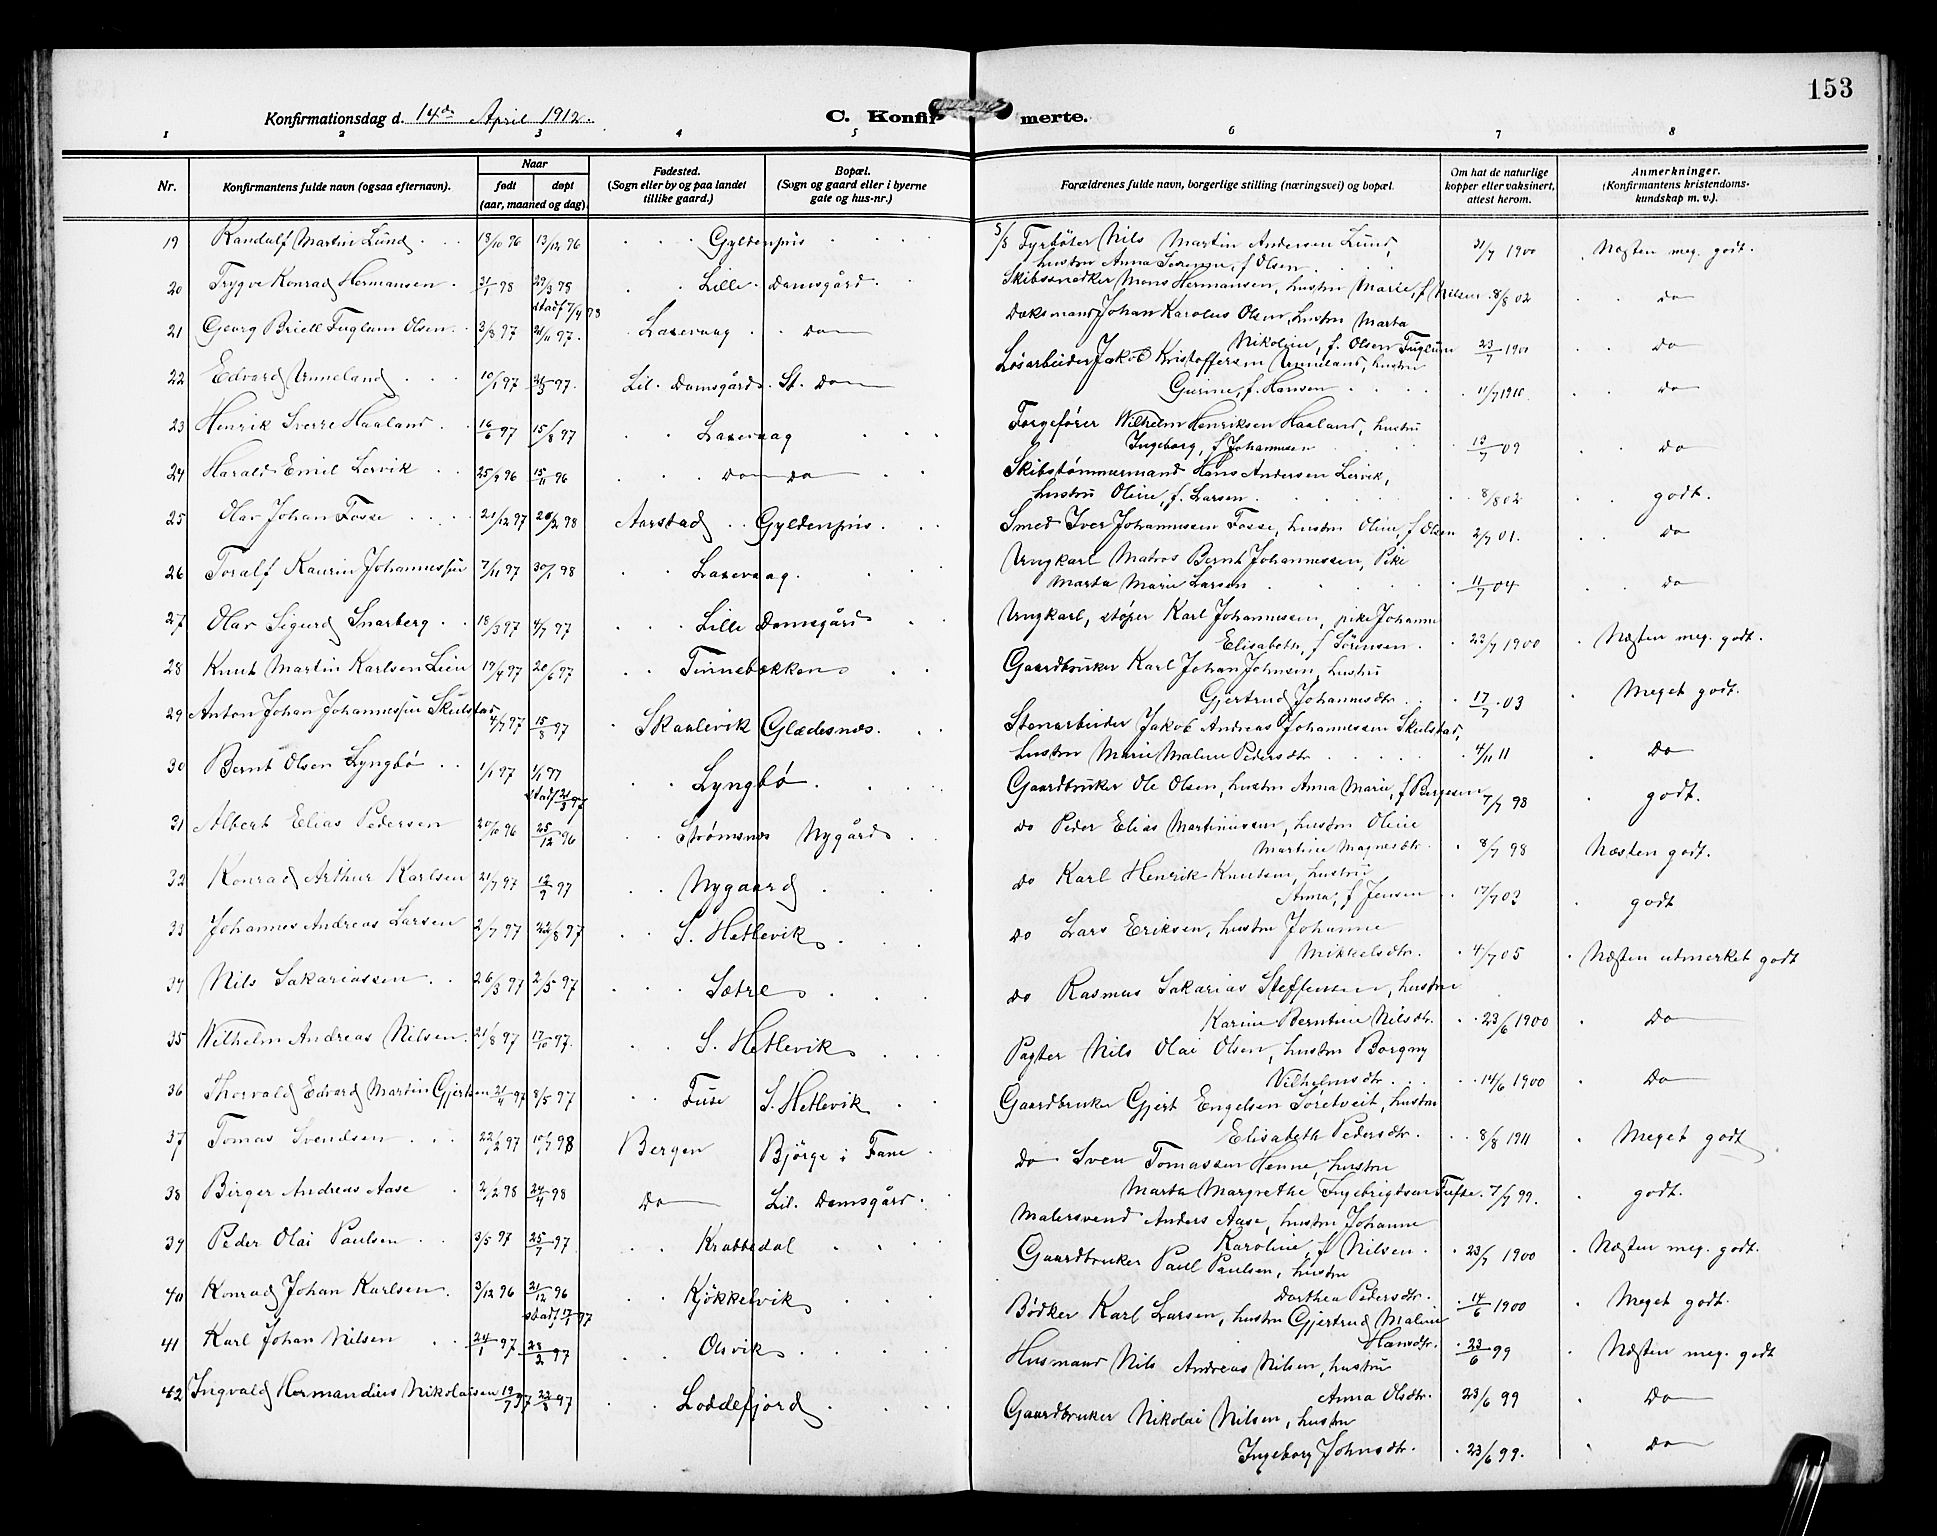 153
Konfirmationsdag d. 14de April 1912.
C. Konfirmerte.
1 2 3 4 5 6 7 8
Nr. Konfirmantens fulde navn (ogsaa efternavn). Naar født døpt (aar, maaned og dag). Fødested. (Sogn eller by og paa landet tillike gaard.) Bopæl. (Sogn og gaard eller i byerne gate og hus-nr.) Forældrenes fulde navn, borgerlige stilling (næringsvei) og bopæl. Om hat de naturlige kopper eller vaksinert, attest herom. Anmerkninger. (Konfirmantens kristendomskundskap m. v.).
19 Randulf Martin Lund 18/10 96 13/12 96 Gyldenpris S/S Fyrbøter Nils Martin Andersen Lund, hustru Anna Severine, f Olsen 31/7 1900 Næsten meg. godt.
20 Trygve Konrad Hermansen 31/1 98 27/3 98 stadf 7/4 98 Lille Damsgård Skibssnedker Mons Hermansen, hustru Marie, f Nilsen 8/8 02 do
21 Georg Brield Fuglum Olsen 3/8 97 21/11 97. Laxevaag do Doksmand Johan Karolus Olsen, hustru Marta Nikoline, f. Olsen Fuglum 23/7 1900 do
22 Edvard Unneland 10/1 97 3/5 97. Lil. Damsgård St. do Løsarbeider Jakob Kristoffersen Unneland, hustru Gurine, f. Hansen 11/7 1910 do
23 Henrik Sverre Haaland 16/6 97 15/8 97 Laxevaag Forgefører Wilhelm Henriksen Haaland, hustru Ingeborg, f Johannesen 13/7 09 do
24 Harald Emil Lervik 25/9 96 15/11 96 do do Skibstømmermand Hans Andersen Lervik, hustru Oline, f. Larsen 8/8 02 godt.
25 Olav Johan Fosse 21/12 97 20/2 98 Aarstad Gyldenpris Smed Iver Johannessen Fosse, hustru Oline, f Olsen 2/7 01. do
26 Toralf Kaurin Johannessen 7/11 97 30/1 98 Laxevaag. Ungkarl Matros Bernt Johannessen, Pike Marta Marie Larsen 11/7 04 do
27 Olav Sigurd Snarberg 18/3 97 4/7 97 Lille Damsgård Ungkarl, støper Karl Johannessen, pike Johanne Elisabeth, f Sørensen 23/7 1900 Næsten meg. godt.
28 Knut Martin Karlsen Lien 19/4 97 20/6 97 Tennebækken Gaardbruker Karl Johan Johnsen, hustru Gjertrud Johannesdtr. 17/7 03 Meget godt.
29 Anton Johan Johannessen Skulstad 4/7 97 15/8 97 Skaalevik Glædesnes Stenarbeider Jakob Andreas Johannessen Skulstad, hustru Marie Malene Pedersdtr 4/11 11 Do
30 Bernt Olsen Lyngbø 1/1 97 1/1 97 stadf 21/3 97 Lyngbø Gaardbruker Ole Olsen, hustru Anna Marie, f Bergesen 7/7 98 godt.
31 Albert Elias Pedersen 20/10 96 25/12 96 Strømsnes Nygård do Peder Elias Martinussen, hustru Oline Martine Magnesdtr. 8/7 98 Næsten godt.
32 Konrad Arthur Karlsen 21/7 97 12/9 97 Nygaard do Karl Henrik Knutsen, hustru Anna, f Jensen 17/7 03 godt
33 Johannes Andreas Larsen 2/7 97 22/8 97 S. Hetlevik do Lars Eriksen, hustru Johanne Mikkelsdtr. 4/7 05 Næsten utmerket godt
34 Nils Sakariassen 26/3 97 2/5 97 Sætre do Rasmus Sakarias Steffensen, hustru Karine Berntine Nilsdtr. 23/6 1900 Do
35 Wilhelm Andreas Nilsen 21/8 97 17/10 97. S. Hetlevik Pagter Nils Olai Olsen, hustru Borgny Vilhelmsdtr. 14/6 1900 Do
36 Thorvald Edvard Martin Gjertsen 21/4 97 8/5 97 Fuse S. Hetlevik Gaardbruker Gjert Engelsen Søretveit, hustru Elisabeth Pedersdtr. 8/8 1911 Meget godt
37 Tomas Svendsen 22/2 97 10/7 98 Bergen Björge i Fane do Sven Tomassen Henne, hustru Marta Margrethe Ingebrigtsen Tufte. 7/7 99. godt.
38 Birger Andreas Aase 2/2 98 24/4 98 Do Lil. Damsgård. Malersvend Anders Aase, hustru Johanne Karoline, f Nilsen 23/7 1900 Næsten meg. godt.
39 Peder Olai Paulsen 3/5 97 25/7 97. Krabbedal Gaardbruker Paul Paulsen, hustru Dorthea Pedersdtr. 14/6 1900 Meget godt.
40 Konrad Johan Karlsen 3/12 96 21/12 96 stadf 17/1 97 Kjøkkelvik Bødker Karl Larsen, hustru Gjertrud Malene Hansdtr. 23/6 99 Næsten meg. godt
41 Karl Johan Nilsen 24/1 97 28/2 97 Olsvik Husmand Nils Andreas Nilsen, hustru Anna Olsdtr. 23/6 99 Do
42 Ingvald Hermandius Nikolaisen 19/7 97 22/8 97 Loddefjord Gaardbruker Nikolai Nilsen, hustru Ingeborg Johnsdtr. 23/6 99. Do